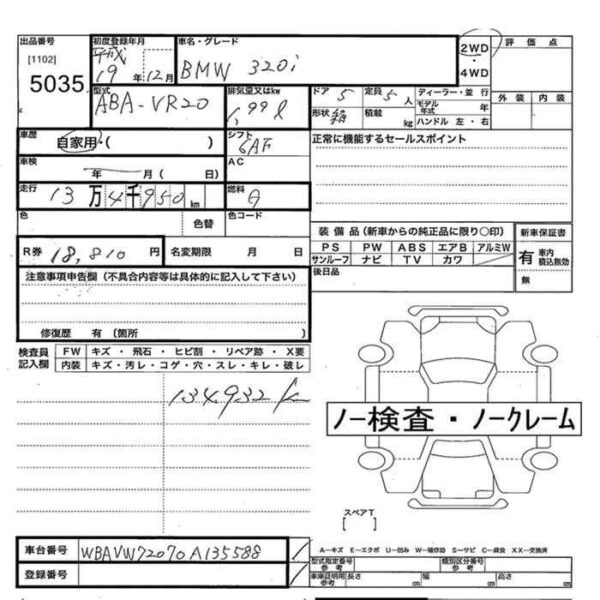 出品番号 初度登録年月 車名・グレード 2WD 評価点
[1102] 平成 ・
5035 19年12月 BMW 320i 4WD 外装 内装
型式 排気量又はkw ドア 5 定員 5人 ディーラー・並行
ABA-VR20 1,99ℓ 形状 積載 kg モデル年式 年
ハンドル 左・右
車歴 自家用・( ) シフト 6AF 正常に機能するセールスポイント
車検 年 月 ( 日) AC
走行 13万4千950km 燃料 G
色 色替 色コード 装備品 (新車からの純正品に限り○印) 新車保証書
PS PW ABS エアB アルミW 有 車内 積込無効
R券 18,810円 名変期限 月 日 サンルーフ ナビ TV カワ 無
注意事項申告欄 (不具合内容等は具体的に記入して下さい) 後日品
修復歴 有 〔箇所
検査員 FW キズ ・ 飛石 ・ ヒビ割 ・ リペア跡 ・ X要
記入欄 内装 キズ・汚レ・コゲ・穴・スレ・キレ・破レ
134,932k
ノー検査・ノークレーム
スペアT
[ ]
車台番号 WBAVW72070A135588 A-キズ E-エクボ U-凹み W-補修跡 S-サビ C-腐食 XX-交換済
型式指定番号 参考 類別区分番号 参考
登録番号 車庫証明用 参考 長さ cm 幅 cm 高さ cm